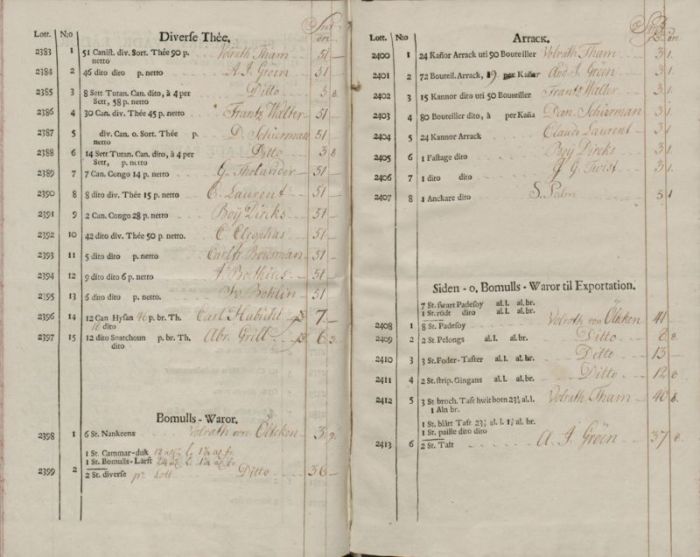 Diverse Thée.
Lott. N:o
2383 1 51 Canist. div. Sort. Thée 90 p. netto Volrath Tham 51
2384 2 46 dito dito p. netto A J Gröen 51
2385 3 8 Sett Tutan. Can. dito, à 4 per Sett, 58 p. netto Ditto 3 8
2386 4 30 Can. div. Thée 45 p. netto Frantz Walter 51
2387 5 div. Can. o. Sort. Thée p. D. Schiurman 51
2388 6 14 Sett Tutan. Can. dito, à 4 per Sett, p. netto Ditto 3 8
2389 7 7 Can. Congo 14 p. netto G. Tholander 51
2390 8 8 dito div. Thée 15 p. netto C. Laurent 51
2391 9 2 Can. Congo 28 p. netto Boy Dircks 51
2392 10 42 dito div. Thée 50 p. netto. C. 51
2393 11 5 dito dito p. netto Carl Bowman 51
2394 12 9 dito dito 6 p. netto 51
2395 13 6 dito dito p. netto. Bohlin 51
2396 14 12 Can Hysan p. br. Th. Carl Habicht 7
dito
2397 15 12 dito Soatchoun p. br. Th. Abr. Grill 6
dito
Bomulls - Waror.
2398 1 6 St. Nankeens Volrath von Öltken 3
1 St. Cammar-duk
1 St. Bomulls-Lärft
2399 2 2 St. diverse Ditto 36
Arrack.
Lott. N:o
2400 1 24 Kañor Arrack uti 50 Bouteiller Volrath Tham 31
2401 2 72 Bouteil. Arrack, 19 per Kañor A J Gröen 31
2402 3 15 Kannor dito uti 50 Bouteiller Frantz Walter 31
2403 4 80 Bouteiller dito, à per Kaña Dan. Schiurman 31
2404 5 24 Kannor Arrack Claud. Laurent 31
2405 6 1 Fastage dito Boy Dircks 31
2406 7 1 dito dito J G Twist 31
2407 8 1 Anckare dito S. Palm 51
Siden - o. Bomulls - Waror til Exportation.
7 St. swart Padesoy al. l. al. br.
1 St. rödt dito al. l. al. br.
2408 1 8 St. Padesoy Volrath von Öltken 41
2409 2 2 St. Pelongs al. l. al. br. Ditto 8 8
2410 3 3 St. Foder-Tafter al. l. al. br. Ditto 15
2411 4 2 St. strip. Gingans al. l. al. br. Ditto 12 8
2412 5 3 St broch. Taft hwit born 23½ al. l. 1 Aln br. Volrath Tham 40 8
1 St. blått Taft 23½ al. l. 1½ al. br.
1 St. paille dito dito
2413 6 2 St. Taft A. J. Gröen 37 8